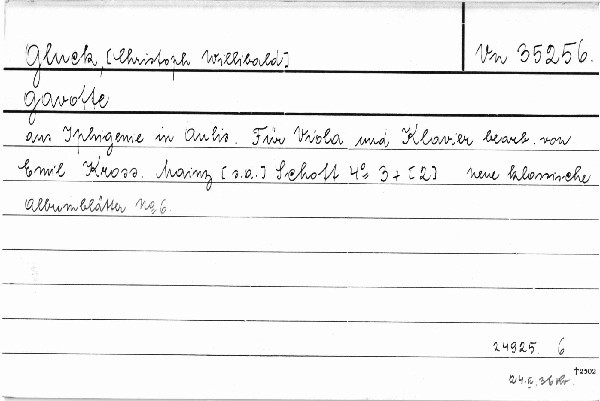 Gluck, [Christoph Willibald] Vn 35256.
Gavotte
aus Iphigenie in Aulis. Für Viola und Klavier bearb. von
Emil Kross. Mainz [s.a.] Schott 4° 3 + [2] neue klassische
Albumblätter No 6.
24925. 6
24. II. 36
†2902